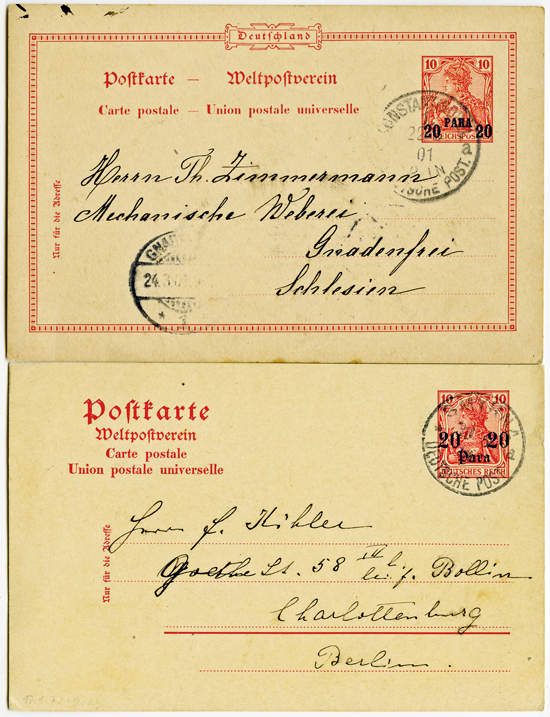 Deutschland
10 10
Postkarte — Weltpostverein
Carte postale — Union postale universelle
20 PARA 20
REICHSPOST
22
01
DEUTSCHE POST.
a
Nur für die Adresse
Herrn Th. Zimmermann
Mechanische Weberei
Gnadenfrei
Schlesien
24.
Postkarte
Weltpostverein
Carte postale
Union postale universelle
10 10
20 20
Para
DEUTSCHES REICH
DEUTSCHE POST
a
Nur für die Adresse
Herrn F. Köhler
Goethe St. 58
Charlottenburg
Berlin.